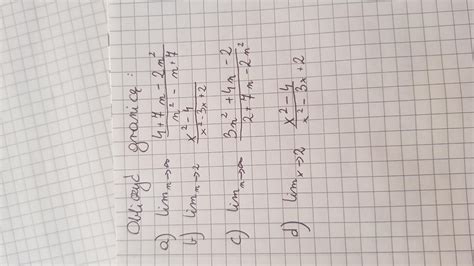 Obliczyć granicę:
a) lim n→∞ (4+7n-2n²)/(n²-n+7)
b) lim n→2 (x²-4)/(x²-3x+2)
c) lim n→∞ (3n²+4n-2)/(2+7n-2n²)
d) lim x→2 (x²-4)/(x²-3x+2)